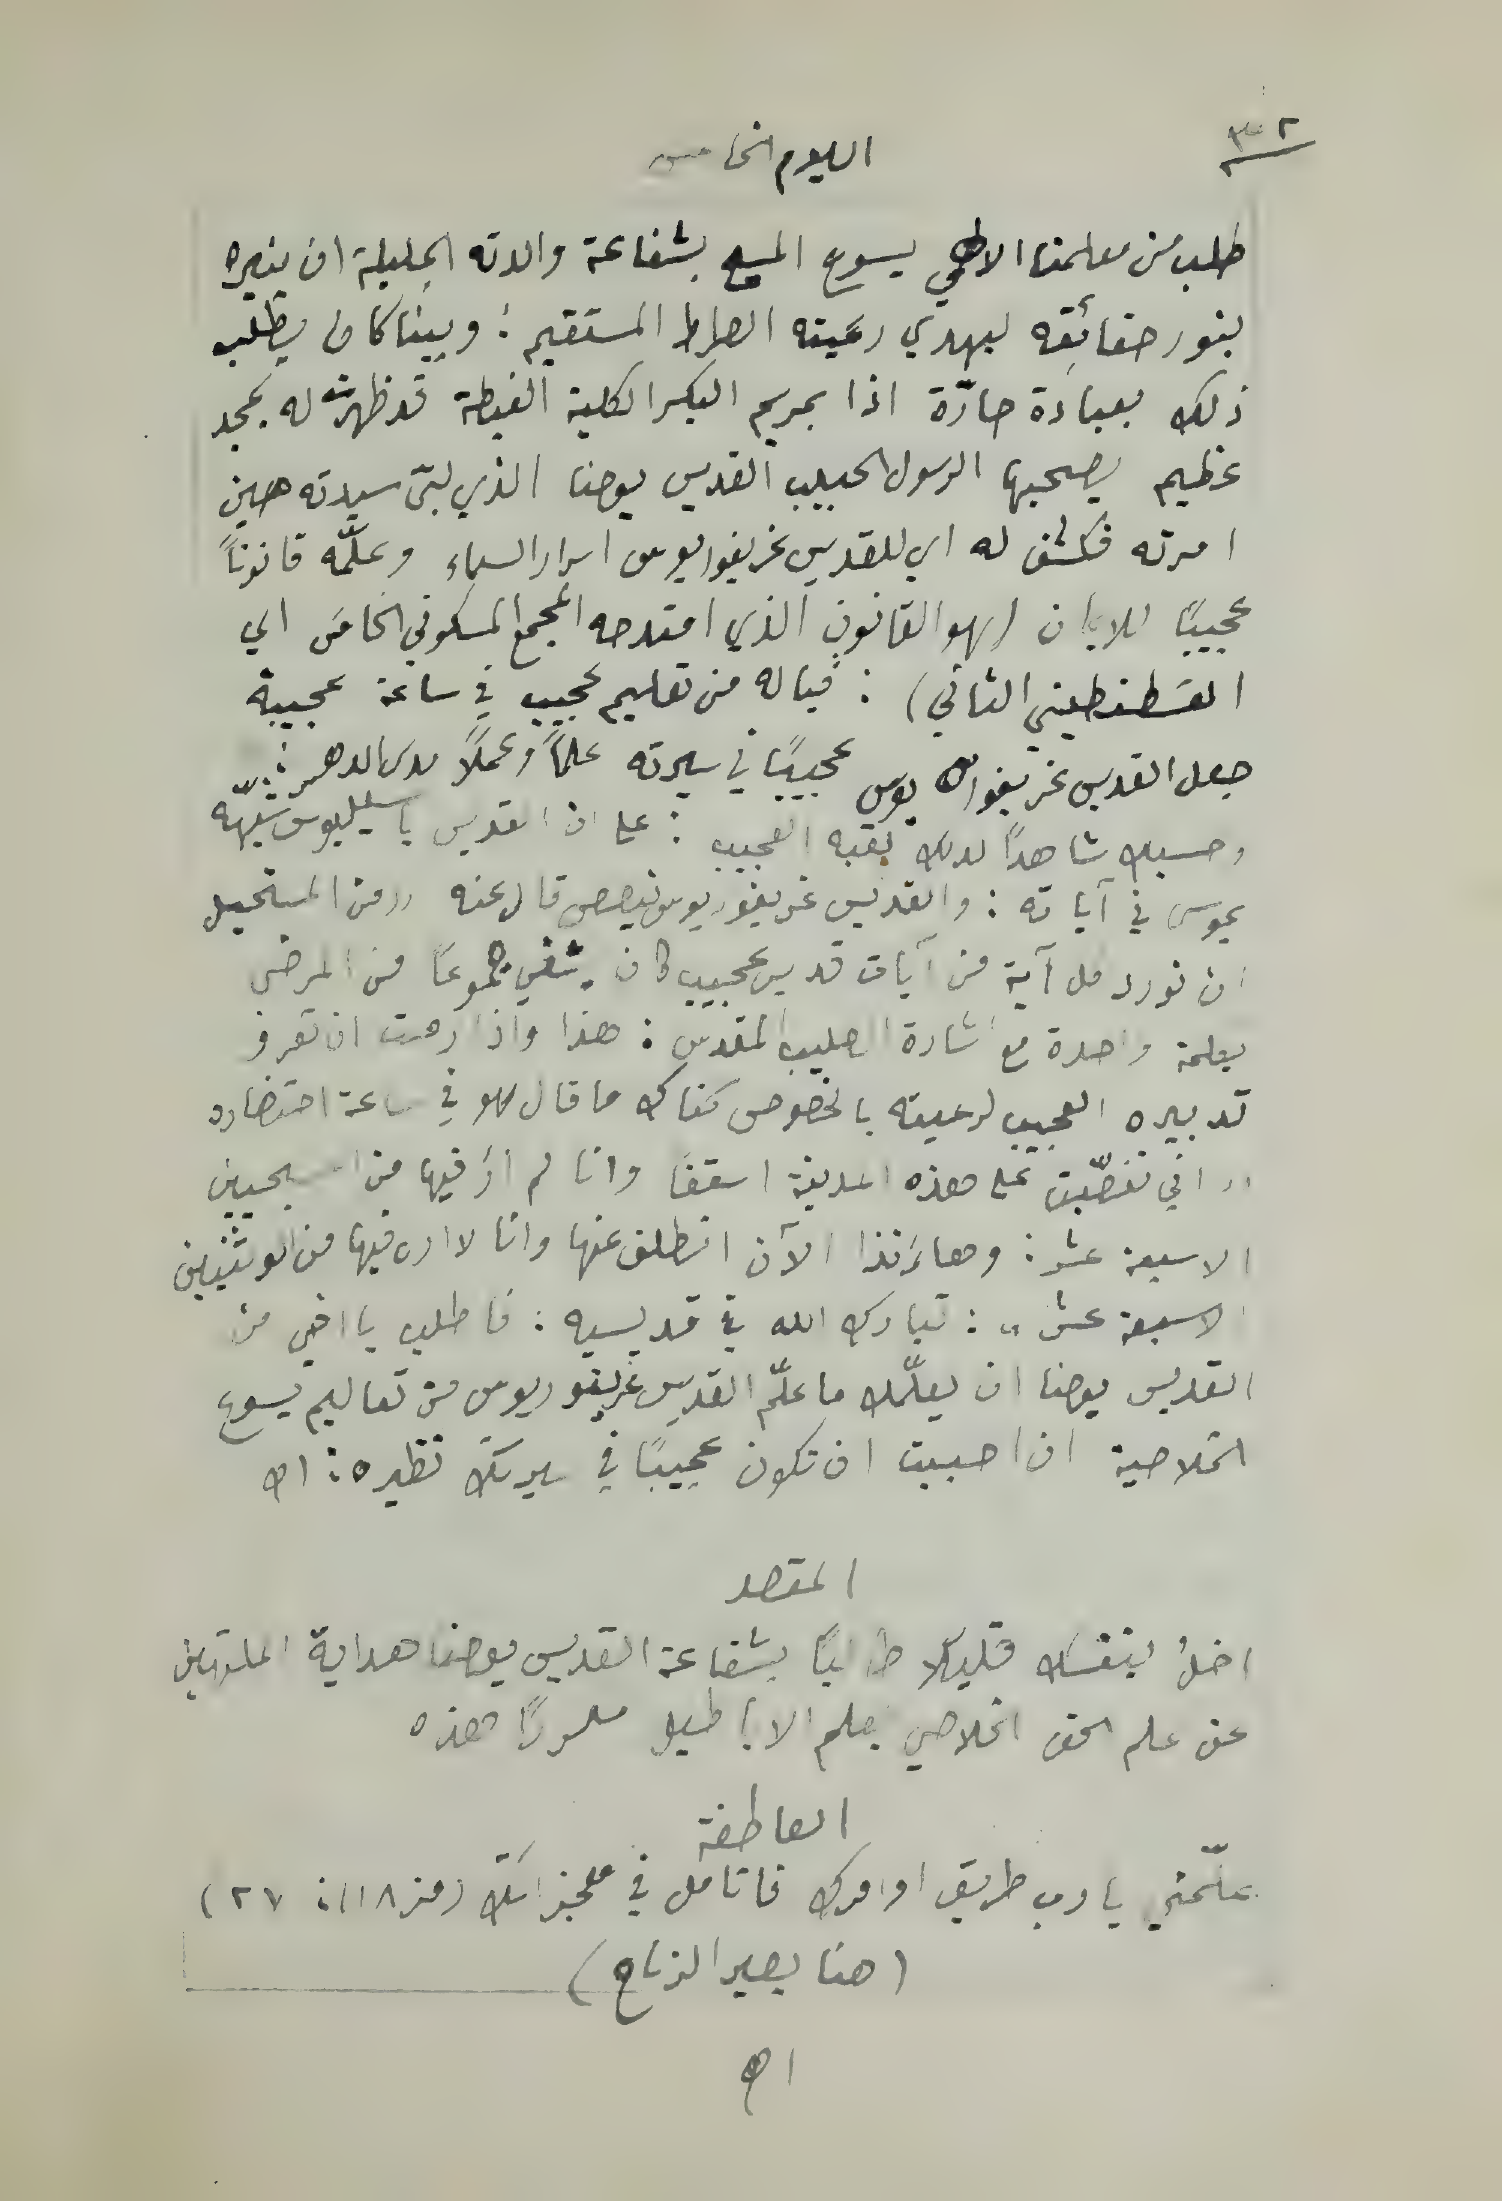 ٣٠٢
اليوم الخامس
طلب من معلمنا الالهي يسوع المسيح بشفاعة والدته الجليلة ان ينيره
بنور حقائقه ليهدي رعيته الصراط المستقيم : وبينا كان يطلب
ذلك بعبادة حارّة اذا بمريم البكر الكلية الغبطة قد ظهرت له بمجد
عظيم يصحبها الرسول الحبيب القديس يوحنا الذي لبّى سيدته حين
امرته فكشف له اي للقديس غريغوريوس اسرار السماء وعلّمه قانوناً
عجيبًا للايمان (هو القانون الذي امتدحه المجمع المسكوني الخامس اي
القسطنطيني الثاني) : فياله من تعليم عجيب في ساعة عجيبة
جعل القديس غريغوريوس عجيبًا في سيرته علماً وعملاً مدى الدهر :
وحسبك شاهداً لذلك لقبه العجيب : على ان القديس باسيليوس شبّهه
بموسى في آياته : والقديس غريغوريوس نيصص قال عنه «من المستحيل
ان نورد كل آية من آيات قديس عجيب كان يشفي جموعاً من المرضى
بكلمة واحدة مع اشارة الصليب المقدس : هذا واذا رمت ان تعرف
تدبيره العجيب لرعيته بالخصوص كفاك ما قال هو في ساعة احتضاره
« اني تنصّبت على هذه المدينة اسقفًا وانا لم أرَ فيها من المسيحيين
الا سبعة عشر : وهاءنذا الآن انطلق عنها وانا لا ارى فيها من الوثنيين
الا سبعة عشر » : تبارك الله في قديسيه : فاطلب يا اخي من
القديس يوحنا ان يعلّمك ما علّم القديس غريغوريوس من تعاليم يسوع
الخلاصية ان احببت ان تكون عجيبًا في سيرتك نظيره : اه
المقصد
اخلُ بنفسك قليلا طالبًا بشفاعة القديس يوحنا هداية الملتهين
عن علم الحق الخلاصي بعلم الاباطيل مكررًا هذه
العاطفة
علّمني يا رب طريق اوامرك فاتامل في معجزاتك (مز ١١٨ : ٢٧)
(هنا يصير الزياح)
اه